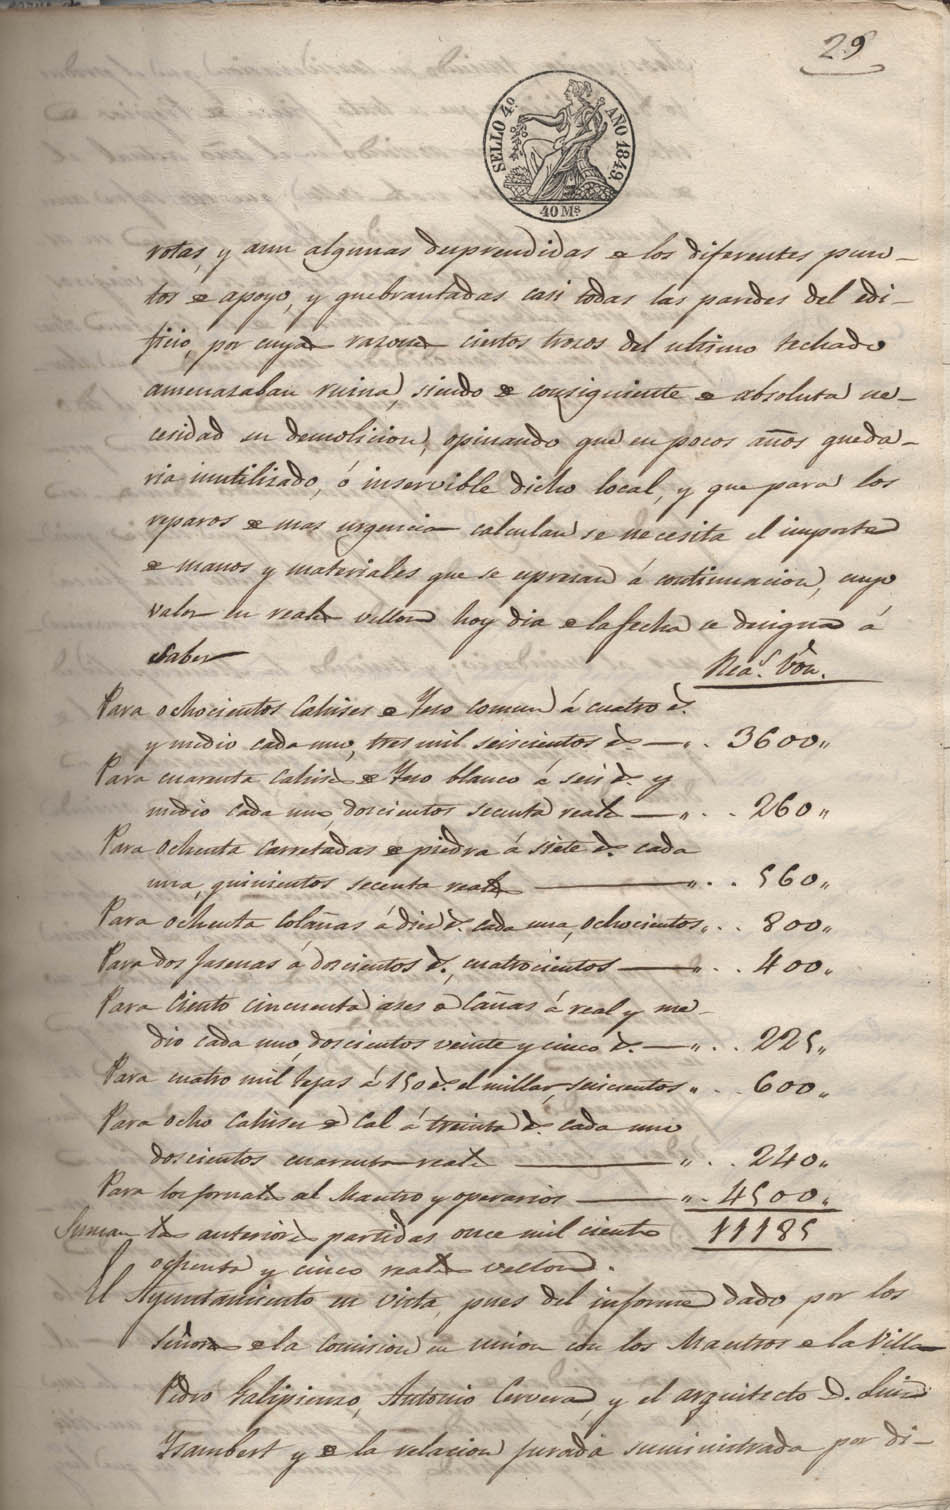 29
SELLO 4º AÑO 1849.
40 Ms
rotas, y aun algunas desprendidas de los diferentes pun-
tos de apoyo, y quebrantadas casi todas las paredes del edi-
ficio, por cuyas razones ciertos trozos del ultimo techado
amenazaban ruina, siendo de consiguiente de absoluta ne-
cesidad su demolicion, opinando que en pocos años queda-
ria inutilizado, ó inservible dicho local, y que para los
reparos de mas urgencia calculan se necesita el importe
de manos y materiales que se expresan á continuacion, cuyo
valor en reales vellon hoy dia de la fecha se designa á
saber
Reas. Von.
Para ochocientos Cahises de Yeso comun á cuatro rs.
y medio cada uno, tres mil seiscientos rs. — ". 3600"
Para cuarenta Cahises de Yeso blanco á seis rs. y
medio cada uno, doscientos sesenta reales — ". . 260"
Para ochenta carretadas de piedra á siete rs. cada
una, quinientos secenta reales — ". . 560"
Para ochenta Colañas á diez rs. cada una, ochocientos ". . 800"
Para dos faseras á doscientos rs., cuatrocientos — ". . 400"
Para ciento cincuenta ases de Cañas á real y me-
dio cada uno, doscientos veinte y cinco rs. — ". . 225"
Para cuatro mil tejas á 150 rs. el millar, seiscientos ". . 600"
Para ocho Cahises de Cal á treinta rs. cada uno
doscientos cuarenta reales — ". . 240"
Para los jornales al Maestro y operarios — ". 4500"
Suman las anteriores partidas once mil ciento 11185
ochenta y cinco reales vellon.
El Ayuntamiento en vista pues del informe dado por los
Señores de la Comision en union con los Maestros de la Villa
Pedro Galipienzo, Antonio Cervera, y el arquitecto D. Luis
Ysambert y de la relacion jurada suministrada por di-